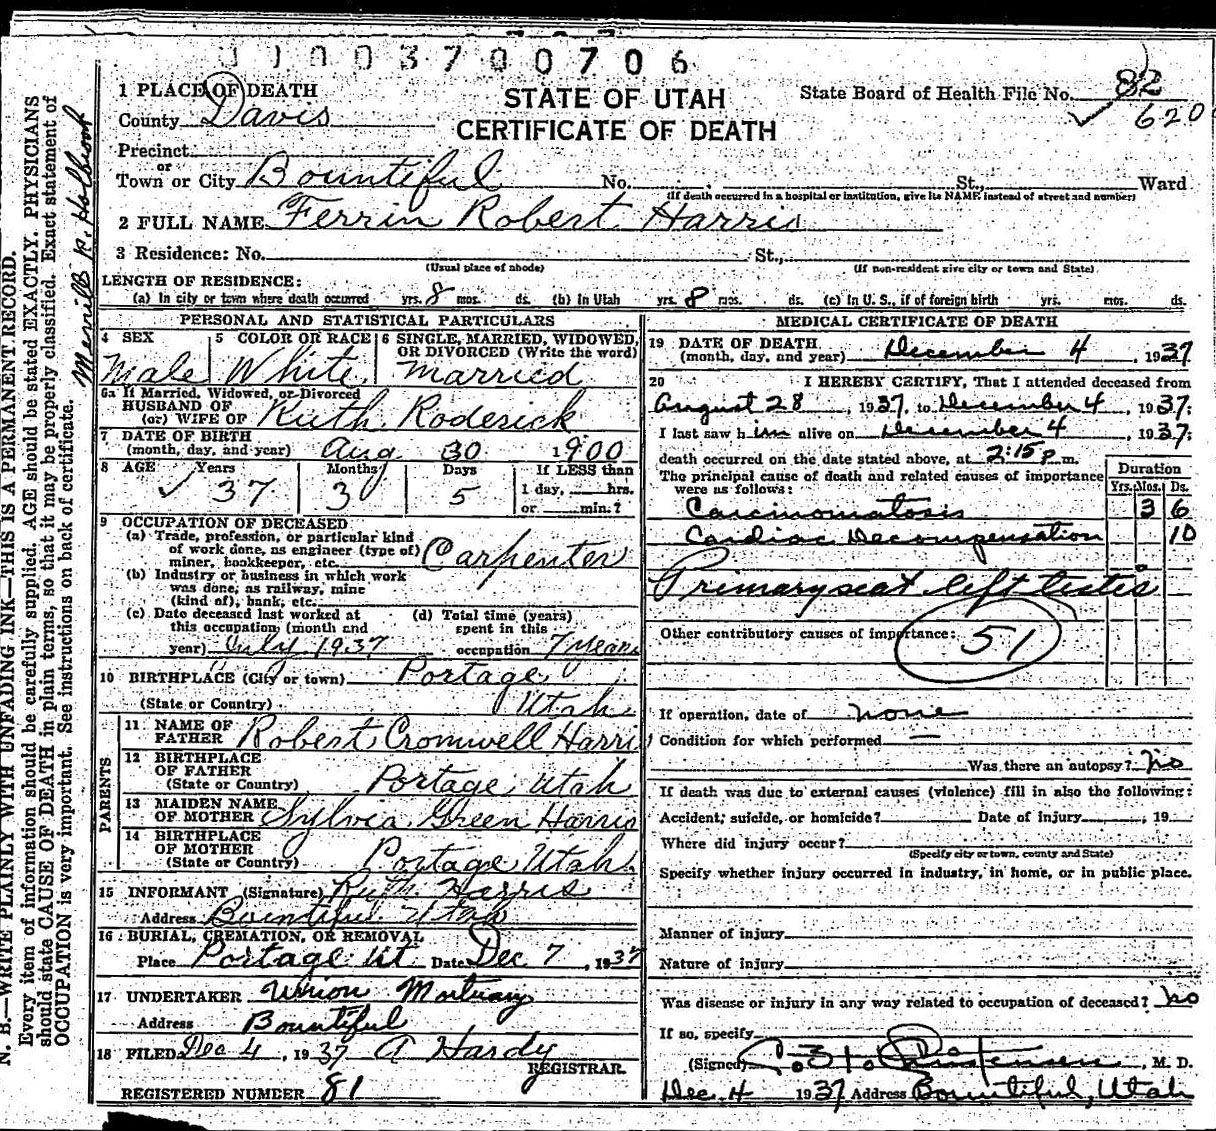 1003700706
1 PLACE OF DEATH
County Davis
STATE OF UTAH
CERTIFICATE OF DEATH
State Board of Health File No. 82
620
Precinct
or
Town or City Bountiful No. St., Ward
(If death occurred in a hospital or institution, give its NAME instead of street and number)
2 FULL NAME Ferrin Robert Harris
3 Residence: No. St.,
(Usual place of abode) (If non-resident give city or town and State)
LENGTH OF RESIDENCE:
(a) In city or town where death occurred yrs. 8 mos. ds. (b) In Utah yrs. 8 mos. ds. (c) In U. S., if of foreign birth yrs. mos. ds.
PERSONAL AND STATISTICAL PARTICULARS
4 SEX
Male
5 COLOR OR RACE
White
6 SINGLE, MARRIED, WIDOWED,
OR DIVORCED (Write the word)
Married
6a If Married, Widowed, or Divorced
HUSBAND OF
(or) WIFE OF Ruth Roderick
7 DATE OF BIRTH
(month, day, and year) Aug 30 1900
8 AGE Years Months Days If LESS than
37 3 5 1 day, hrs.
or min.?
9 OCCUPATION OF DECEASED
(a) Trade, profession, or particular kind
of work done, as engineer (type of)
miner, bookkeeper, etc. Carpenter
(b) Industry or business in which work
was done, as railway, mine
(kind of), bank, etc.
(c) Date deceased last worked at
this occupation (month and
year) July 1937
(d) Total time (years)
spent in this
occupation 7 years
10 BIRTHPLACE (City or town) Portage
(State or Country) Utah
PARENTS
11 NAME OF
FATHER Robert Cromwell Harris
12 BIRTHPLACE
OF FATHER
(State or Country) Portage Utah
13 MAIDEN NAME
OF MOTHER Sylvia Green Harris
14 BIRTHPLACE
OF MOTHER
(State or Country) Portage Utah
15 INFORMANT (Signature) Ruth Harris
Address Bountiful Utah
16 BURIAL, CREMATION, OR REMOVAL
Place Portage Ut Date Dec 7, 1937
17 UNDERTAKER Union Mortuary
Address Bountiful
18 FILED Dec 4, 1937 A Hardy
REGISTRAR.
REGISTERED NUMBER 81
MEDICAL CERTIFICATE OF DEATH
19 DATE OF DEATH
(month, day, and year) December 4, 1937
20 I HEREBY CERTIFY, That I attended deceased from
August 28, 1937, to December 4, 1937;
I last saw him alive on December 4, 1937;
death occurred on the date stated above, at 2:15 p m.
The principal cause of death and related causes of importance
were as follows:
Duration
Yrs. Mos. Ds.
Carcinomatosis 3 6
Cardiac Decompensation 10
Primary seat left testis
Other contributory causes of importance:
51
If operation, date of none
Condition for which performed —
Was there an autopsy? No
If death was due to external causes (violence) fill in also the following:
Accident, suicide, or homicide? Date of injury , 19
Where did injury occur?
(Specify city or town, county and State)
Specify whether injury occurred in industry, in home, or in public place.
Manner of injury
Nature of injury
Was disease or injury in any way related to occupation of deceased? No
If so, specify
(Signed) , M. D.
Dec 4 1937 Address Bountiful, Utah
N. B.—WRITE PLAINLY WITH UNFADING INK—THIS IS A PERMANENT RECORD.
Every item of information should be carefully supplied. AGE should be stated EXACTLY. PHYSICIANS
should state CAUSE OF DEATH in plain terms, so that it may be properly classified. Exact statement of
OCCUPATION is very important. See instructions on back of certificate.
Merrill R. Holbrook